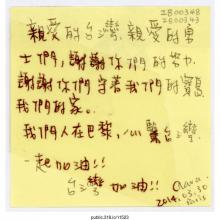 2B00348
2B00343
親愛的台灣,親愛的鬥
士們,謝謝你們的努力,
謝謝你們守著我們的寶島
我們的家。
我們人在巴黎,心繫台灣。
一起加油!!
台灣 加油!!
2014.03.30
Paris
public.318.io/11523